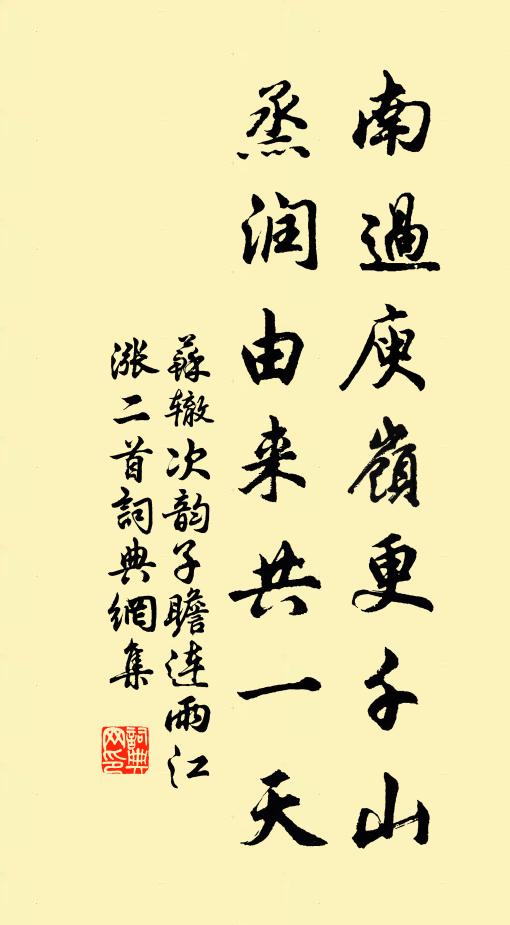 南過庾嶺更千山
烝润由来共一天
蘇辙次韵子瞻连雨江
涨二首詞典網集
詞典
网印